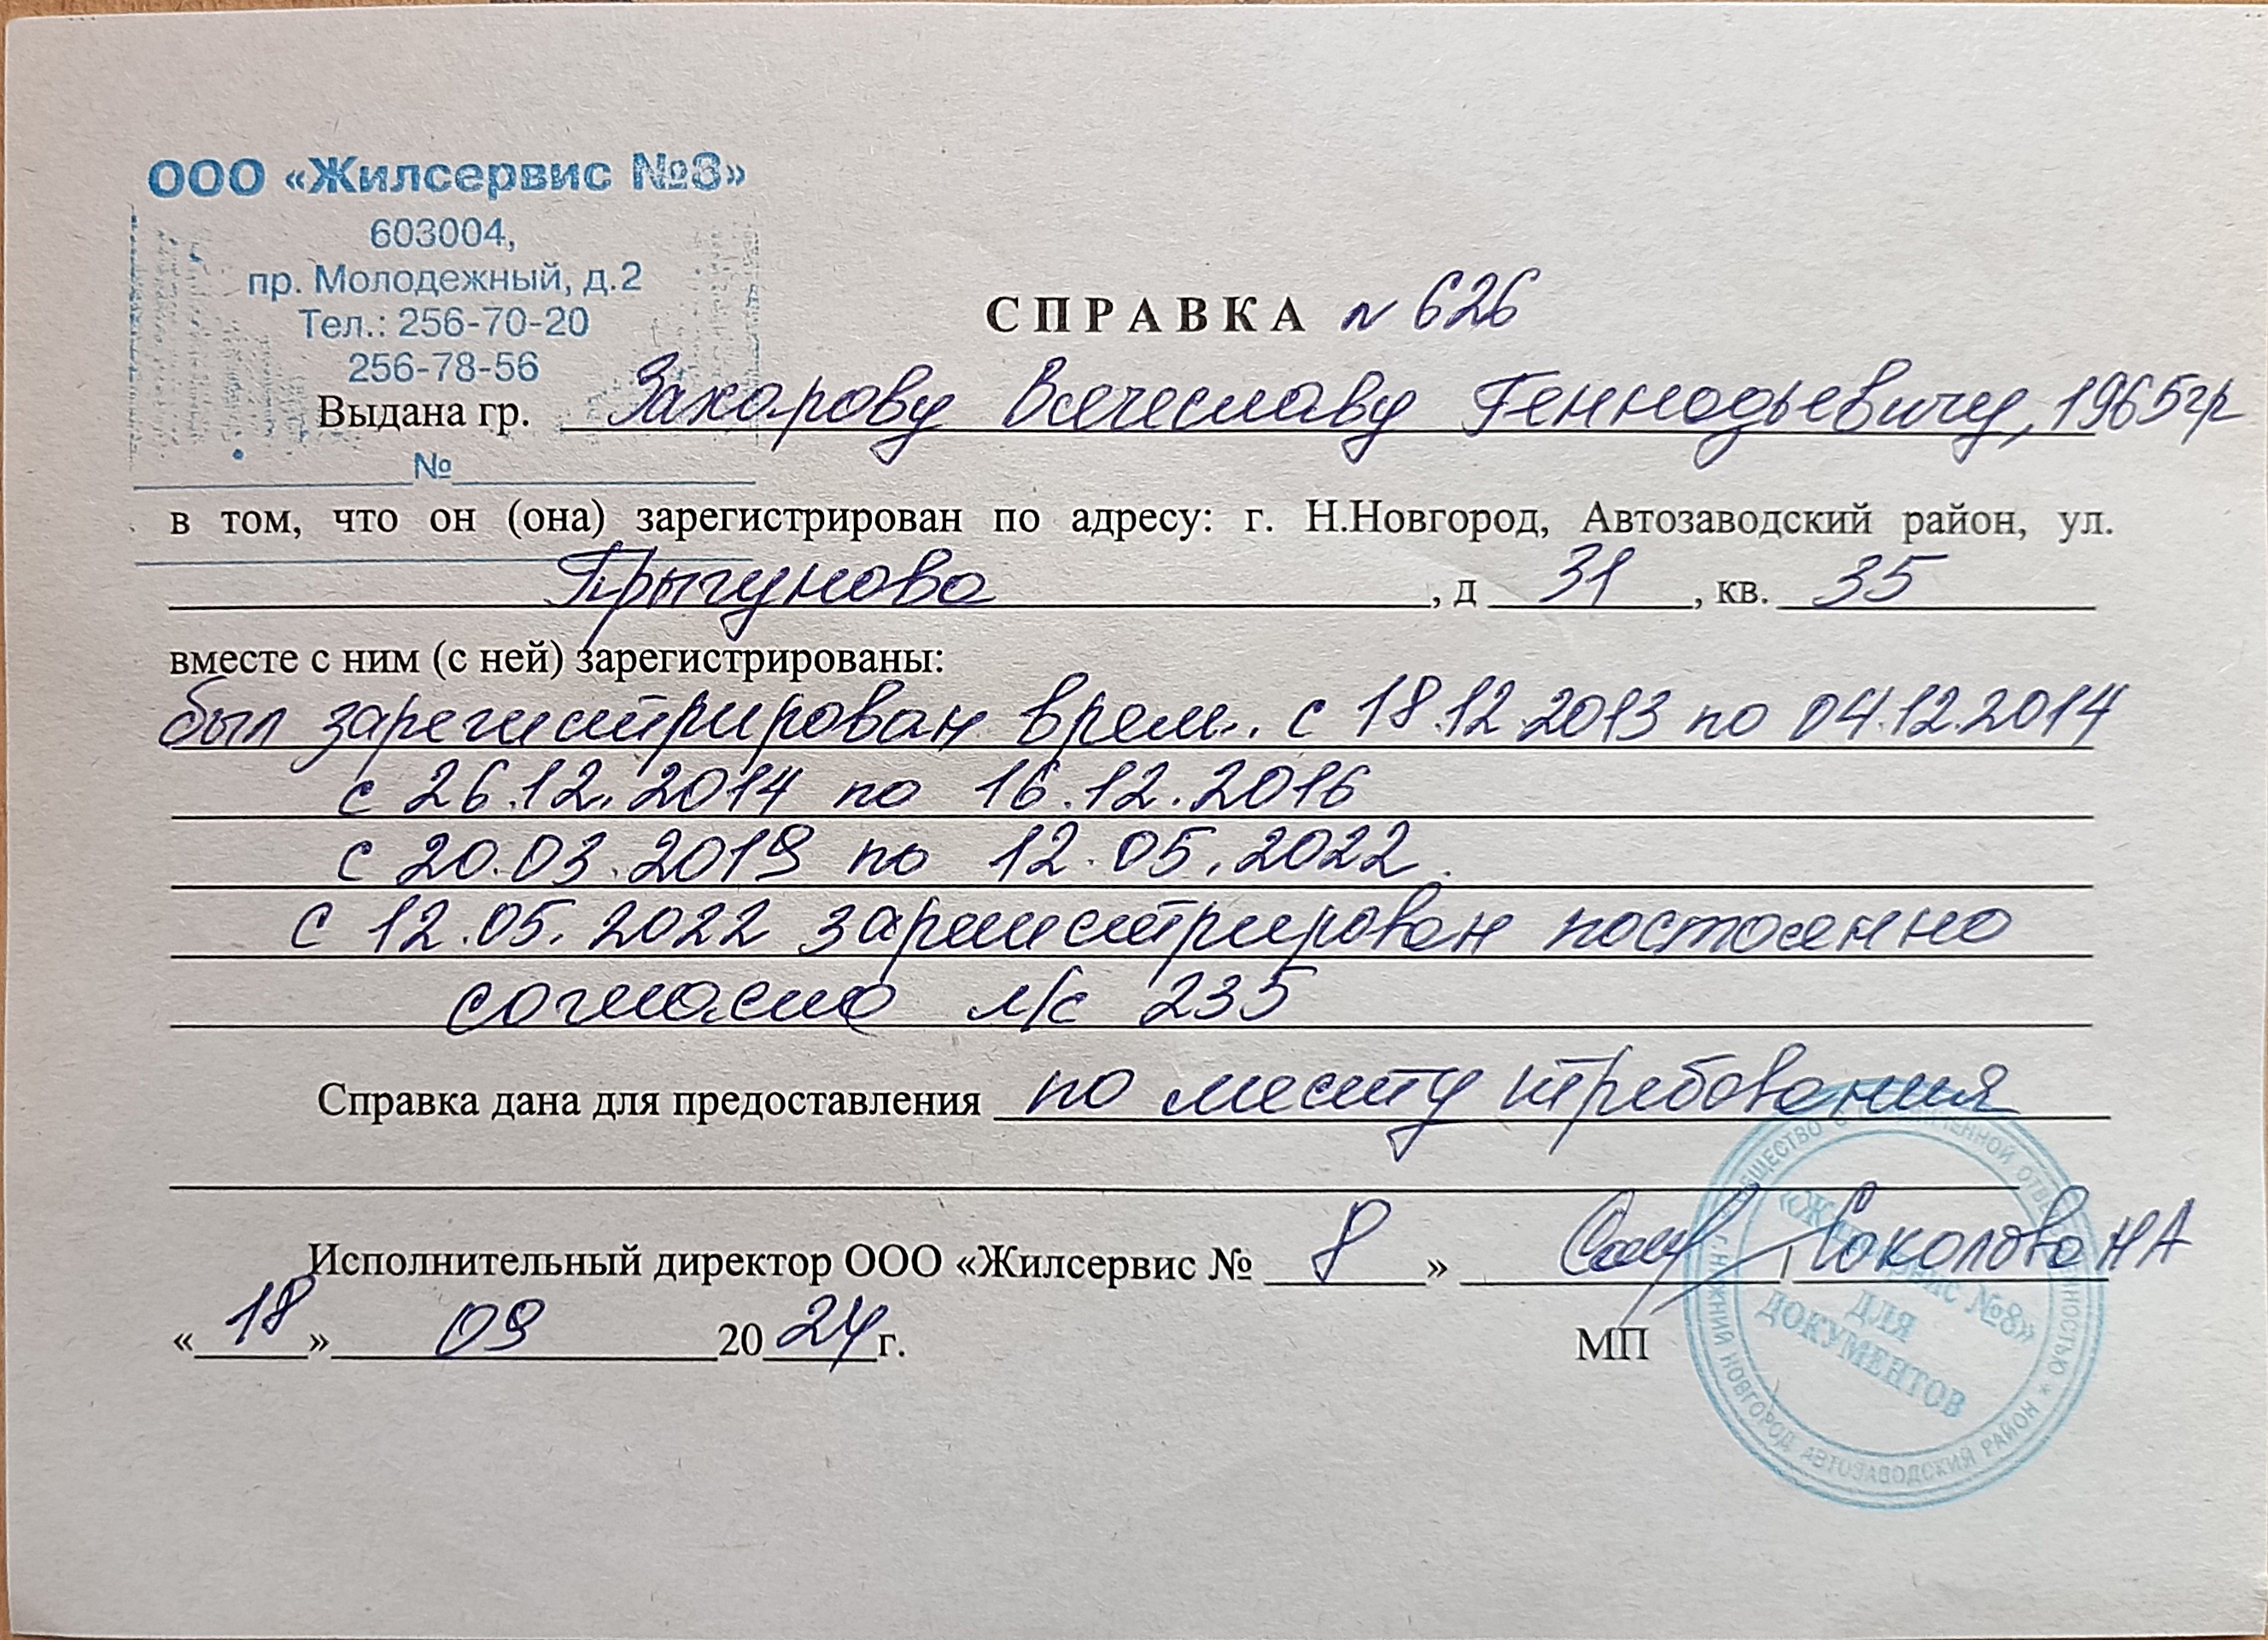 ООО «Жилсервис №8»
603004,
пр. Молодежный, д.2
Тел.: 256-70-20
256-78-56
№
СПРАВКА № 626
Выдана гр. Захарову Вячеславу Геннадьевичу, 1965гр
в том, что он (она) зарегистрирован по адресу: г. Н.Новгород, Автозаводский район, ул.
Прыгунова, д 31, кв. 35
вместе с ним (с ней) зарегистрированы:
был зарегистрирован врем. с 18.12.2013 по 04.12.2014
с 26.12.2014 по 16.12.2016
с 20.03.2019 по 12.05.2022.
с 12.05.2022 зарегистрирован постоянно
согласно л/с 235
Справка дана для предоставления по месту требования
Исполнительный директор ООО «Жилсервис № 8» / Соколова НА
«18» 09 2024г.
МП
ОБЩЕСТВО С ОГРАНИЧЕННОЙ ОТВЕТСТВЕННОСТЬЮ * Г.НИЖНИЙ НОВГОРОД АВТОЗАВОДСКИЙ РАЙОН *
«Жилсервис №8»
ДЛЯ
ДОКУМЕНТОВ